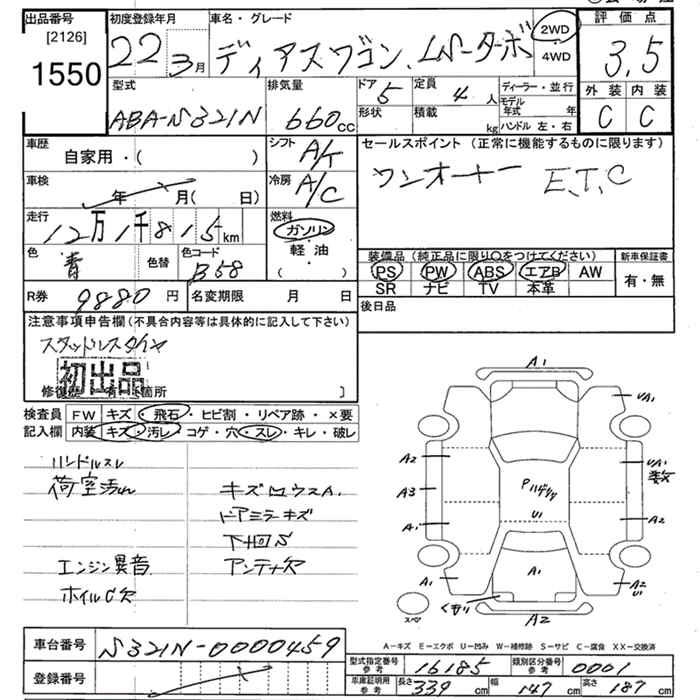 出品番号
[2126]
1550
初度登録年月
22 3月
車名・グレード
ディアスワゴン LSターボ
2WD
4WD
評価点
3.5
外装 内装
C C
型式
ABA-S321N
排気量
660cc
ドア 5
形状
定員 4人
積載 kg
ディーラー・並行
モデル年式 年
ハンドル 左・右
車歴 自家用・( )
車検 年 月( 日)
走行 12万1千815km
色 青 色替 色コード B58
シフト A/T
冷房 A/C
燃料
ガソリン
軽油
( )
R券 9880円 名変期限 月 日
セールスポイント (正常に機能するものに限ります)
ワンオーナー E.T.C
装備品 (純正品に限り〇をつけてください)
PS PW ABS エアB AW
SR ナビ TV 本革
新車保証書
有・無
後日品
注意事項申告欄 (不具合内容等は具体的に記入して下さい)
スタッドレスタイヤ
初出品
検査員記入欄
FW キズ・飛石・ヒビ割・リペア跡・×要
内装 キズ・汚レ・コゲ・穴・スレ・キレ・破レ
ハンドルスレ
荷室汚れ
キズ凹ウスA.
ドアミラーキズ
下回S
エンジン異音
アンテナ欠
ホイルC欠
A1
UA1
A2
UA1
数
A3
U1
A1
A2
A1
A1
A2
U
A2
スペ
A-キズ E-エクボ U-凹み W-補修跡 S-サビ C-腐食 XX-交換済
車台番号 S321N-0000459
登録番号
型式指定番号 参考 16185
類別区分番号 参考 0001
車庫証明用 参考 長さ 339cm 幅 147cm 高さ 187cm